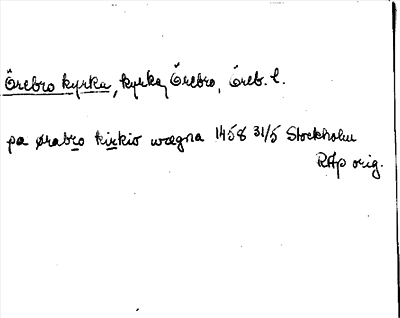 Örebro kyrka, kyrka, Örebro, Öreb. l.
pa ørabro kirkio wægna 1458 31/5 Stockholm
RAp orig.